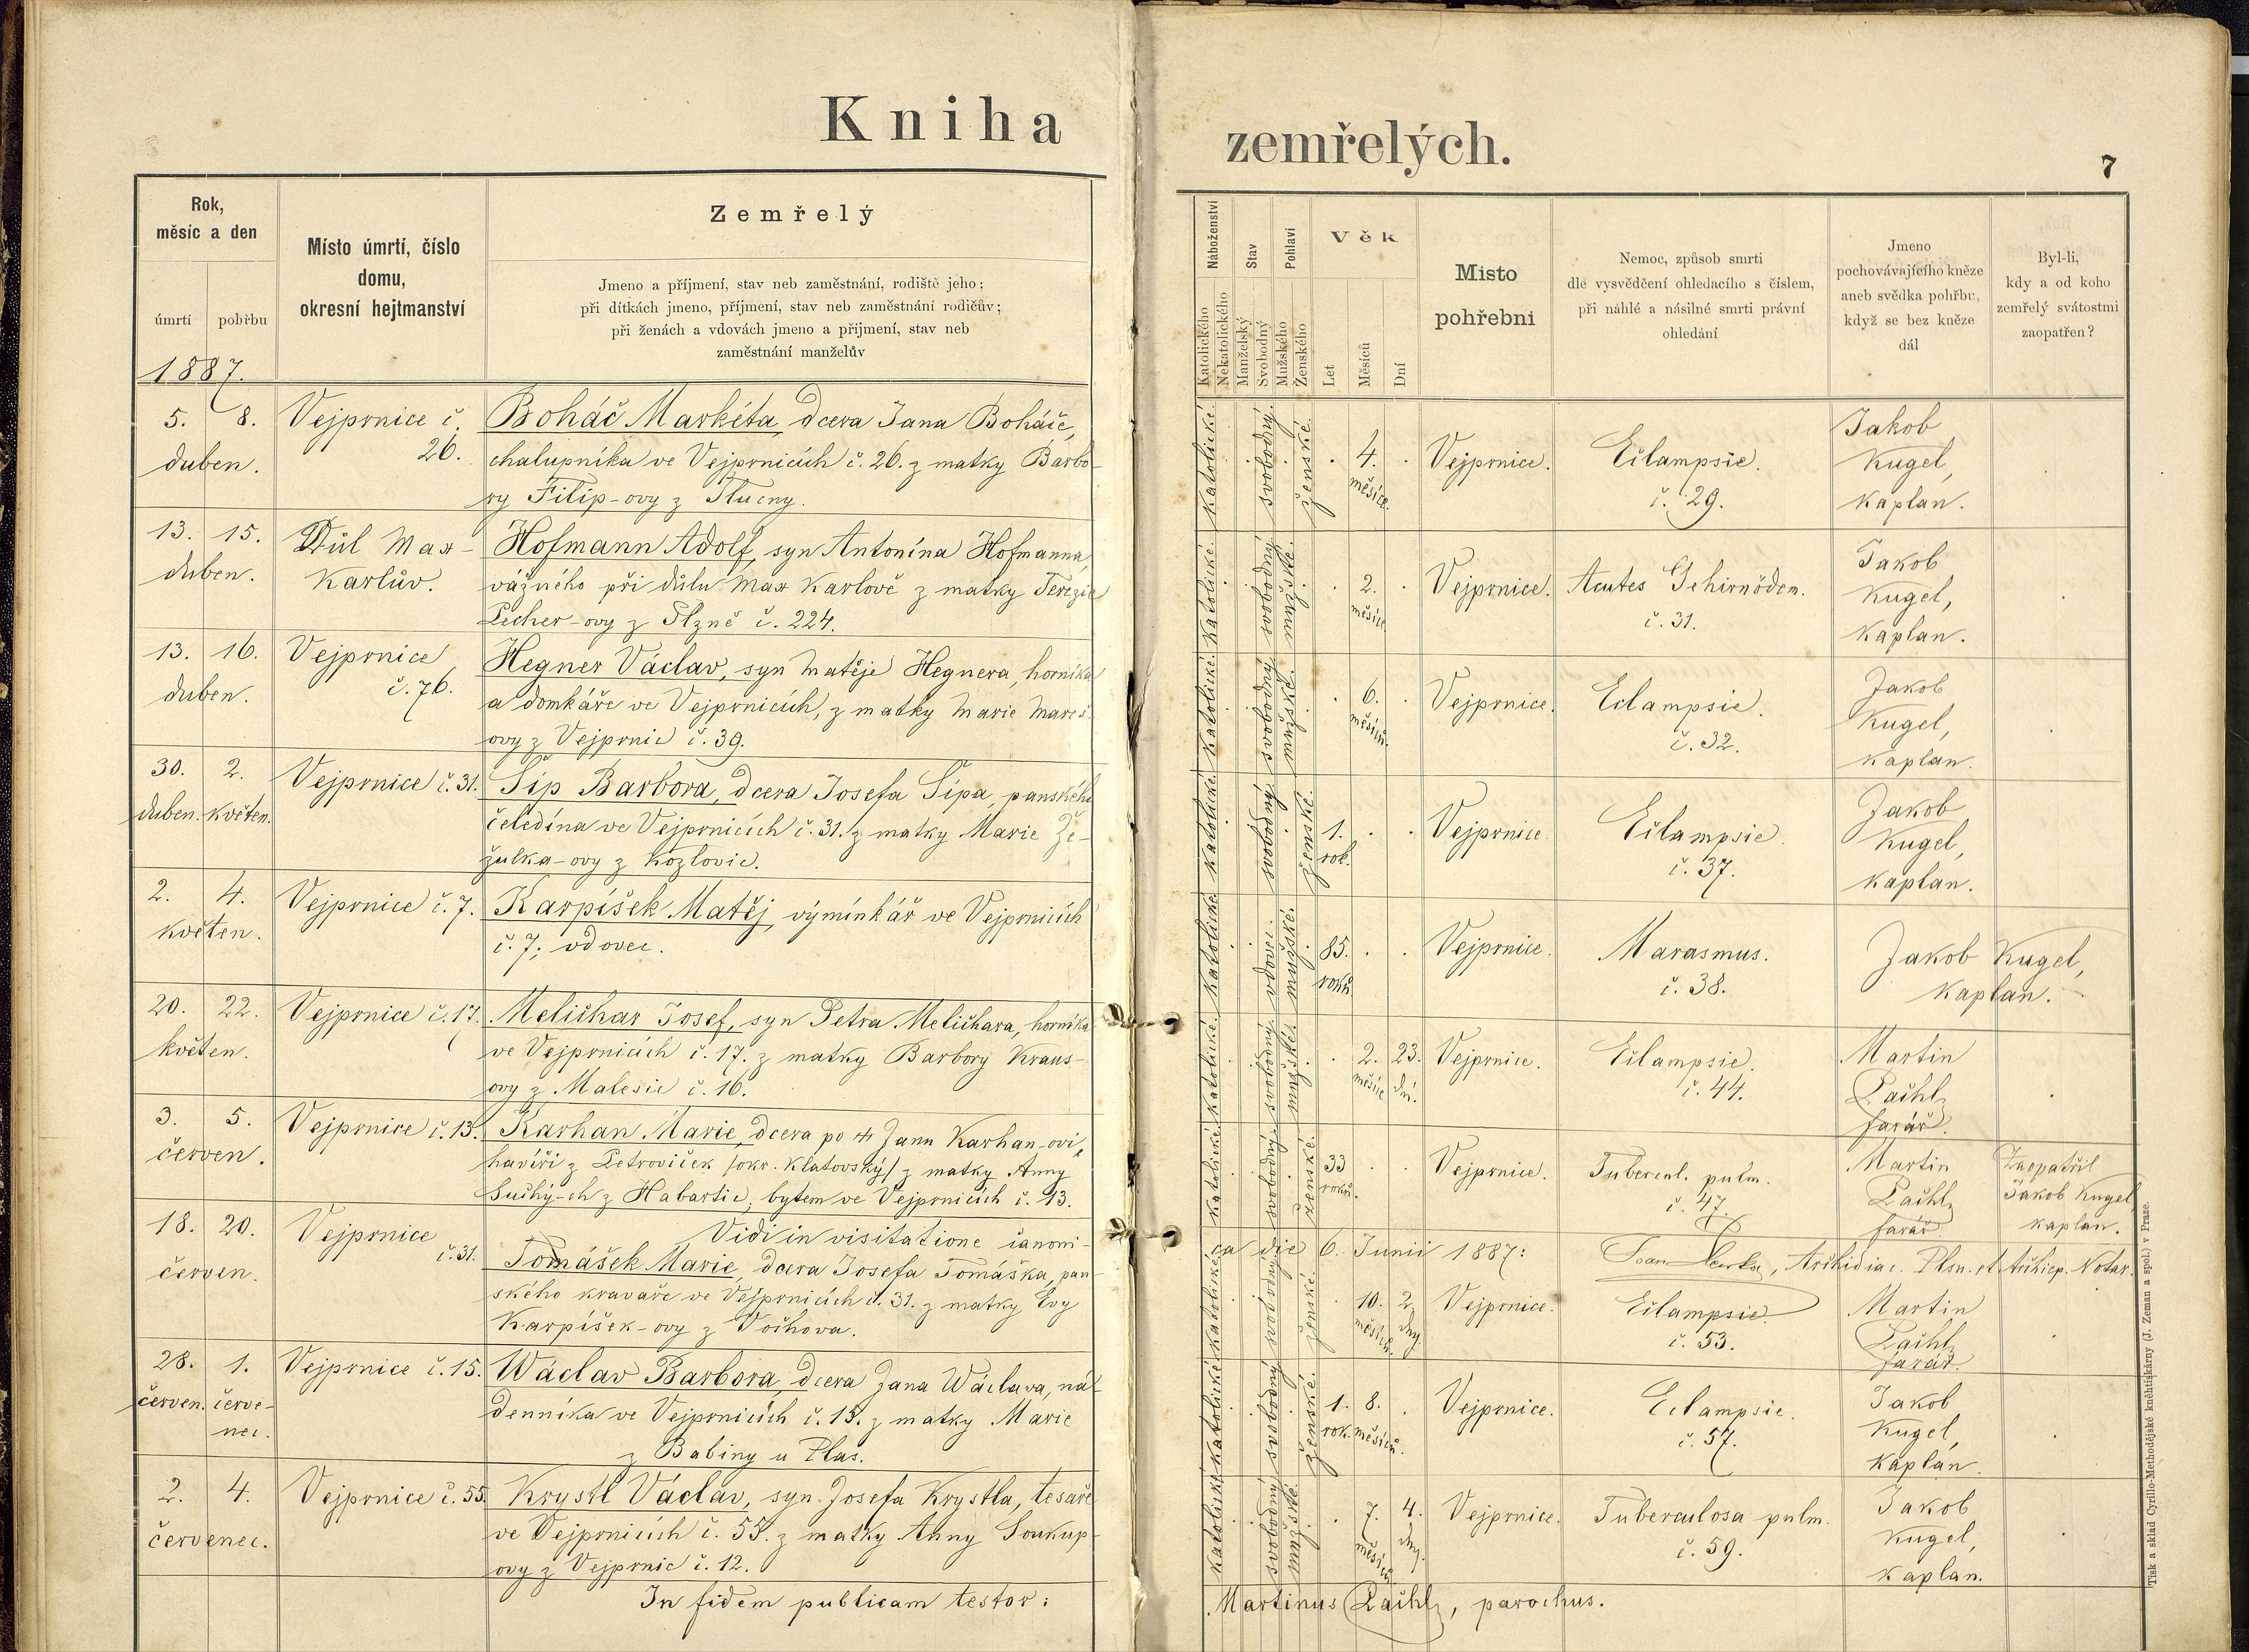 Kniha zemřelých.
7
Rok,
měsíc a den
úmrtí
pohřbu
1887.
Místo úmrtí, číslo
domu,
okresní hejtmanství
Zemřelý
Jmeno a příjmení, stav neb zaměstnání, rodiště jeho;
při dítkách jmeno, příjmení, stav neb zaměstnání rodičův;
při ženách a vdovách jmeno a příjmení, stav neb
zaměstnání manželův
Náboženství
Katolického
Nekatolického
Stav
Manželský
Svobodný
Pohlaví
Mužského
Ženského
Věk
Let
Měsíců
Dní
Místo
pohřební
Nemoc, způsob smrti
dle vysvědčení ohledacího s číslem,
při náhlé a násilné smrti právní
ohledání
Jmeno
pochovávajícího kněze
aneb svědka pohřbu,
když se bez kněze
dál
Byl-li,
kdy a od koho
zemřelý svátostmi
zaopatřen?
5. 8.
duben.
Vejprnice č.
26.
Boháč Markéta, dcera Jana Boháče,
chalupníka ve Vejprnicích č. 26. z matky Barbo-
ry Filip-ovy z Tlucny.
katolické. svobodný. ženské. 4. měsíce.
Vejprnice.
Eclampsie.
č. 29.
Jakob
Kugel,
kaplan.
13. 15.
duben.
Důl Max-
Karlův.
Hofmann Adolf, syn Antonína Hofmanna,
vážného při důlu Max Karlově z matky Terezie
Pecher-ovy z Plzně č. 224.
katolické. svobodný mužské. 2. měsíce.
Vejprnice.
Acutes Gehirnödem.
č. 31.
Jakob
Kugel,
kaplan.
13. 16.
duben.
Vejprnice
č. 76.
Hegner Václav, syn Matěje Hegnera, horníka
a domkáře ve Vejprnicích, z matky Marie Mareš-
ovy z Vejprnic č. 39.
katolické. svobodný mužské. 6. měsíců.
Vejprnice.
Eclampsie.
č. 32.
Jakob
Kugel,
kaplan.
30. 2.
duben. květen.
Vejprnice č. 31.
Šíp Barbora, dcera Josefa Šípa, panského
čeledína ve Vejprnicích č. 31. z matky Marie Že-
žulka-ovy z Kozlovic.
katolické. svobodný. ženské. 1. rok.
Vejprnice.
Eclampsie.
č. 37.
Jakob
Kugel,
kaplan.
2. 4.
květen.
Vejprnice č. 7.
Karpíšek Matěj, výmínkář ve Vejprnicích
č. 7; vdovec.
katolické. vdovec. mužské. 85. roků
Vejprnice.
Marasmus.
č. 38.
Jakob Kugel,
kaplan.
20. 22.
květen.
Vejprnice č. 17.
Melichar Josef, syn Petra Melichara, horníka
ve Vejprnicích č. 17. z matky Barbory Kraus-
ovy z Malesic č. 16.
katolické. svobodný. mužské. 2. měsíce 23. dní.
Vejprnice.
Eclampsie.
č. 44.
Martin
Pachl,
farář.
3. 5.
červen.
Vejprnice č. 13.
Karhan Marie, dcera po Janu Karhan-ovi,
havíři z Petroviček /okr. Klatovský/ z matky Anny
Suchý-ch z Habartic, bytem ve Vejprnicích č. 13.
katolické. svobodný. ženské. 33 roků.
Vejprnice.
Tubercul. pulm.
č. 47.
Martin
Pachl,
farář.
Zaopatřil
Jakob Kugel,
kaplan.
Vidi in visitatione canoni-
ca die 6. Junii 1887: , Archidiac. Plsn. et Archiep. Notar.
18. 20.
červen.
Vejprnice
č. 31.
Tomášek Marie, dcera Josefa Tomáška, pan-
ského kravaře ve Vejprnicích č. 31. z matky Evy
Karpíšek-ovy z Vochova.
katolické svobodný. ženské. 10. měsíců. 2. dny.
Vejprnice.
Eclampsie.
č. 53.
Martin
Pachl,
farář.
28. 1.
červen. červe-
nec.
Vejprnice č. 15.
Wáclav Barbora, dcera Jana Wáclava, ná-
denníka ve Vejprnicích č. 15. z matky Marie
z Babiny u Plas.
katolické svobodný ženské. 1. rok. 8. měsíců.
Vejprnice.
Eclampsie.
č. 57.
Jakob
Kugel,
kaplan.
2. 4.
červenec.
Vejprnice č. 55.
Krystl Václav, syn Josefa Krystla, tesaře
ve Vejprnicích č. 55. z matky Anny Soukup-
ovy z Vejprnic č. 12.
katolické svobodný mužské. 7. měsíců 4. dny.
Vejprnice.
Tuberculosa pulm.
č. 59.
Jakob
Kugel,
kaplan.
In fidem publicam testor: Martinus Pachl, parochus.
Tisk a sklad Cyrillo-Methodějské knihtiskárny (J. Zeman a spol.) v Praze.